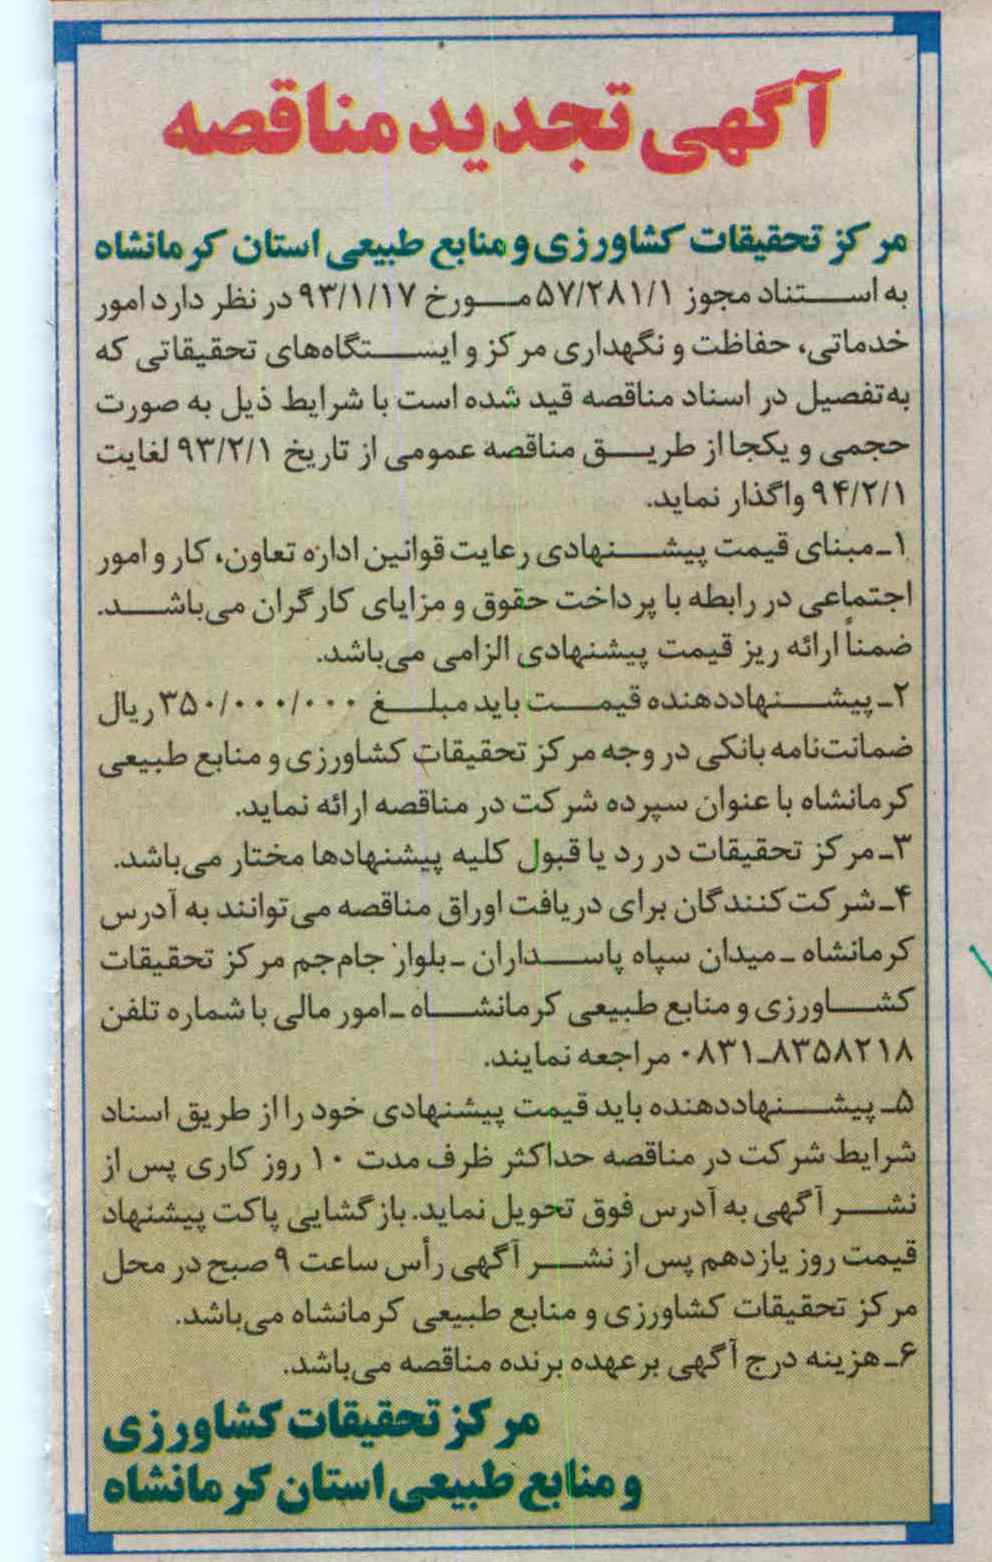 آگهی تجدید مناقصه
مرکز تحقیقات کشاورزی و منابع طبیعی استان کرمانشاه
به استناد مجوز ۵۷/۲۸۱/۱ مورخ ۹۳/۱/۱۷ در نظر دارد امور
خدماتی، حفاظت و نگهداری مرکز و ایستگاه‌های تحقیقاتی که
به‌تفصیل در اسناد مناقصه قید شده است با شرایط ذیل به صورت
حجمی و یکجا از طریق مناقصه عمومی از تاریخ ۹۳/۲/۱ لغایت
۹۴/۲/۱ واگذار نماید.
۱ـ مبنای قیمت پیشنهادی رعایت قوانین اداره تعاون، کار و امور
اجتماعی در رابطه با پرداخت حقوق و مزایای کارگران می‌باشد.
ضمناً ارائه ریز قیمت پیشنهادی الزامی می‌باشد.
۲ـ پیشنهاددهنده قیمت باید مبلغ ۳۵۰/۰۰۰/۰۰۰ ریال
ضمانت‌نامه بانکی در وجه مرکز تحقیقات کشاورزی و منابع طبیعی
کرمانشاه با عنوان سپرده شرکت در مناقصه ارائه نماید.
۳ـ مرکز تحقیقات در رد یا قبول کلیه پیشنهادها مختار می‌باشد.
۴ـ شرکت‌کنندگان برای دریافت اوراق مناقصه می‌توانند به آدرس
کرمانشاه ـ میدان سپاه پاسداران ـ بلوار جام‌جم مرکز تحقیقات
کشاورزی و منابع طبیعی کرمانشاه ـ امور مالی با شماره تلفن
۸۳۵۸۲۱۸ـ۰۸۳۱ مراجعه نمایند.
۵ـ پیشنهاددهنده باید قیمت پیشنهادی خود را از طریق اسناد
شرایط شرکت در مناقصه حداکثر ظرف مدت ۱۰ روز کاری پس از
نشر آگهی به آدرس فوق تحویل نماید. بازگشایی پاکت پیشنهاد
قیمت روز یازدهم پس از نشر آگهی رأس ساعت ۹ صبح در محل
مرکز تحقیقات کشاورزی و منابع طبیعی کرمانشاه می‌باشد.
۶ـ هزینه درج آگهی برعهده برنده مناقصه می‌باشد.
مرکز تحقیقات کشاورزی
و منابع طبیعی استان کرمانشاه